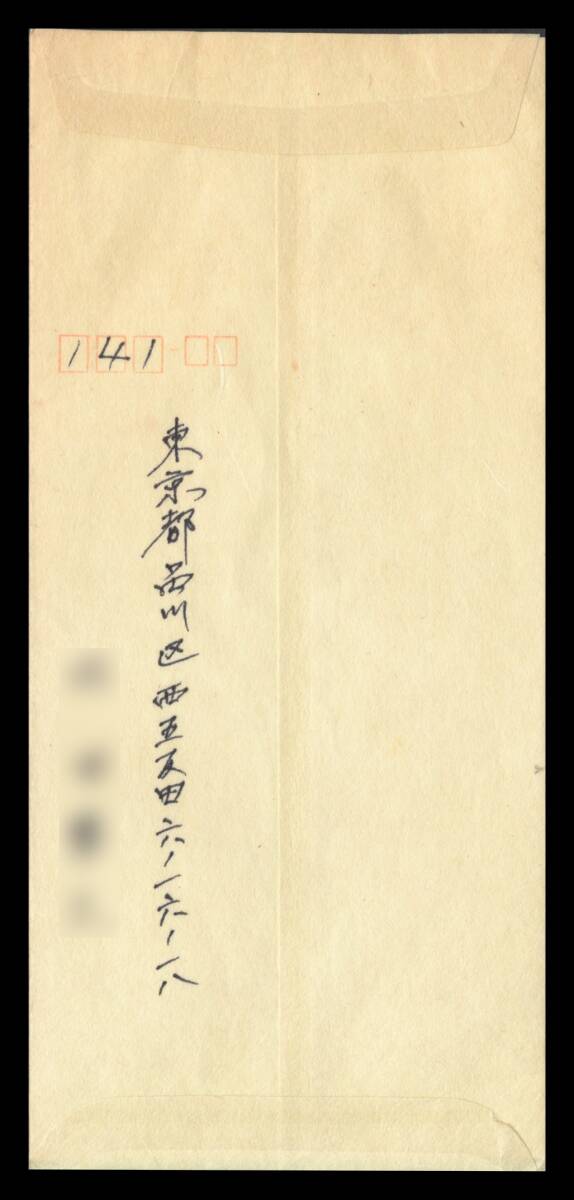 141
東京都品川区西五反田六ノ一六ノ一八